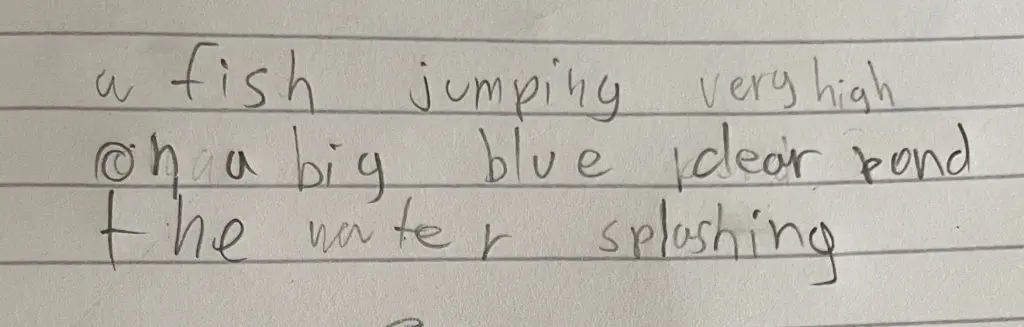 a fish jumping very high
on a big blue clear pond
the water splashing